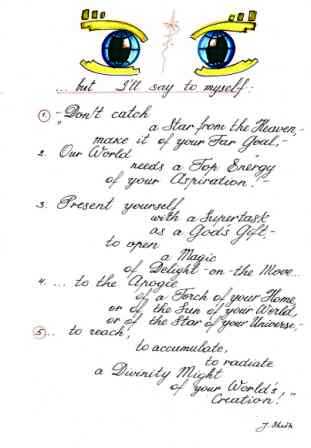 ... but I'll say to myself:
1. - "Don't catch
a Star from the Heaven,-
make it of your Far Goal,-
2. Our World
needs a Top Energy
of your Aspiration!"-
3. Present yourself
with a Supertask
as a God's Gift,-
to open
a Magic
of Delight - on - the Move...
4. ... to the Apogie
of a Torch of your Home,
or of the Sun of your World,
or of the Star of your Universe,-
5. .. to reach,
to accumulate,
to radiate
a Divinity Might
of your World's
Creation!"